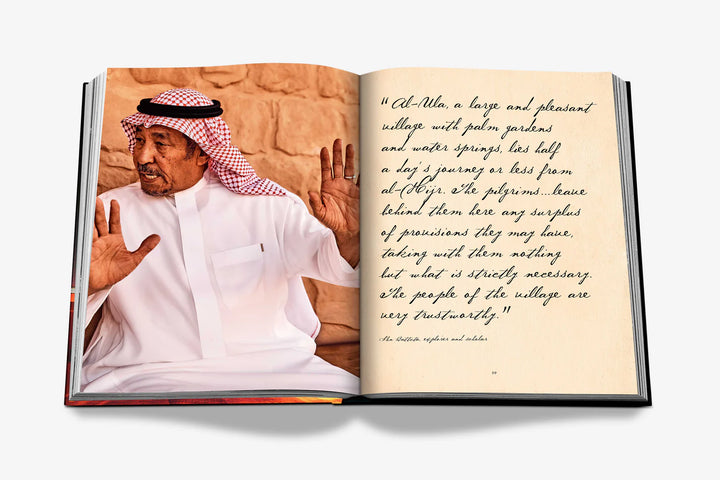 "Al-Ula, a large and pleasant
village with palm gardens
and water springs, lies half
a day's journey or less from
al-Hijr. The pilgrims...leave
behind them here any surplus
of provisions they may have,
taking with them nothing
but what is strictly necessary.
The people of the village are
very trustworthy."
Ibn Battuta, explorer and scholar